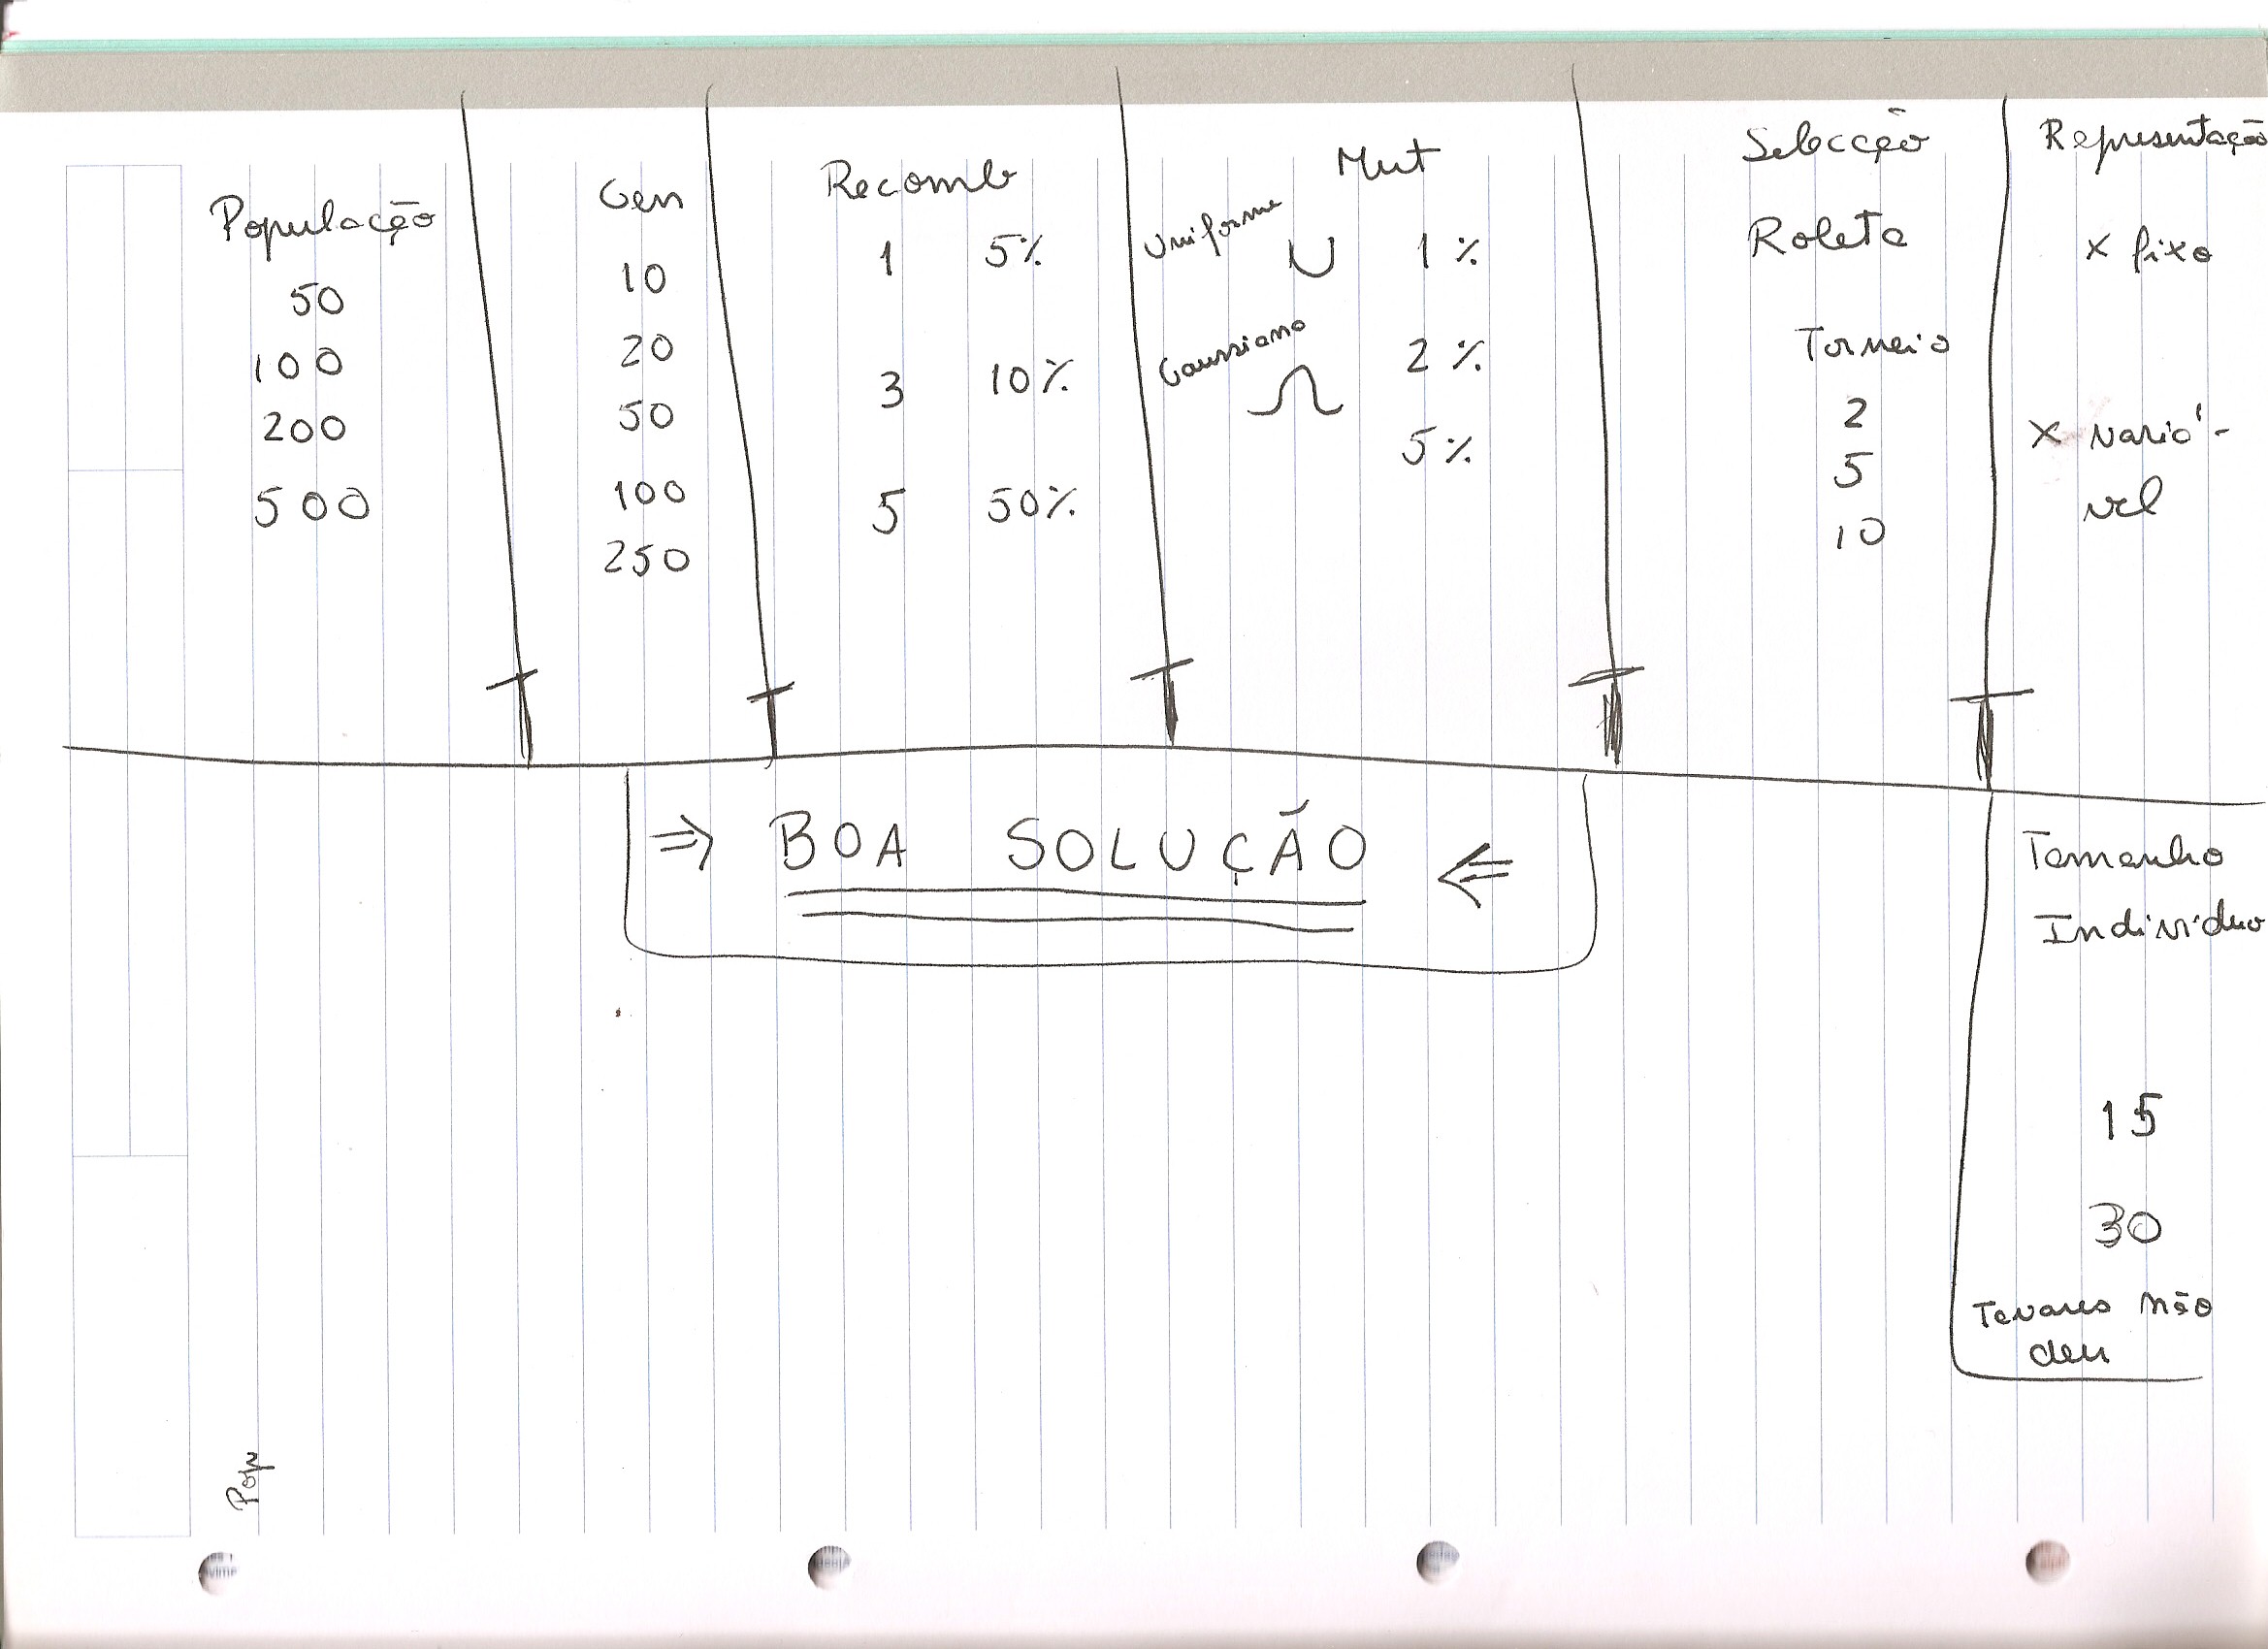 População
50
100
200
500
Gen
10
20
50
100
250
Recomb
1 5%
3 10%
5 50%
Mut
Uniforme U 1%
Gaussiano 2%
5%
Selecção
Roleta
Torneio
2
5
10
Representação
x fixo
x variá-
vel
⇒ BOA SOLUÇÃO ⇐
Tamanho
Individuo
15
30
Tavares não
deu
Pop